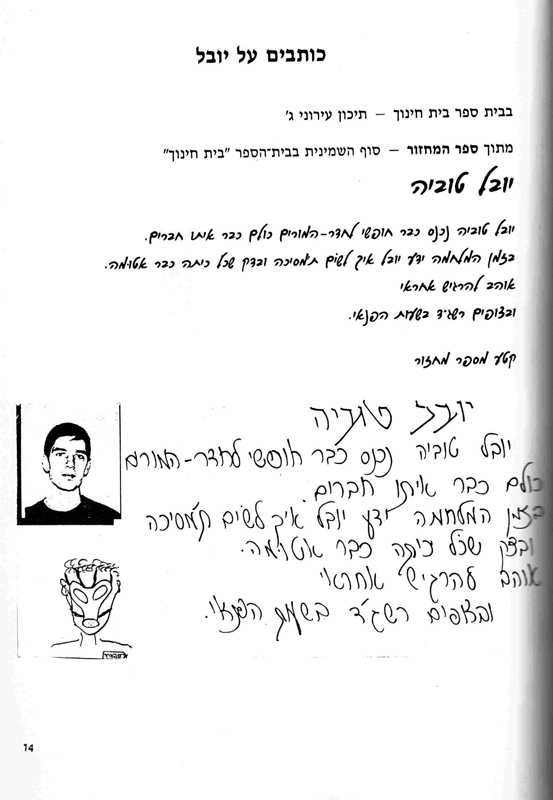 כותבים על יובל
בבית ספר בית חינוך – תיכון עירוני ג'
מתוך ספר המחזור – סוף השמינית בבית־הספר "בית חינוך"
יובל טוביה
יובל טוביה נכנס כבר חופשי לחדר-המורים כולם כבר איתו חברים.
בזמן המלחמה ידע יובל איך לשים ת'מסיכה ובדק שכל כיתה כבר אטומה.
אוהב להרגיש אחראי
ובצופים רשג"ד בשעות הפנאי.
קטע מספר מחזור
יובל טוביה
יובל טוביה נכנס כבר חופשי לחדר-המורים
כולם כבר איתו חברים.
בזמן המלחמה ידע יובל איך לשים ת'מסיכה
ובדק שכל כיתה כבר אטומה.
אוהב להרגיש אחראי
ובצופים רשג"ד בשעות הפנאי.
14